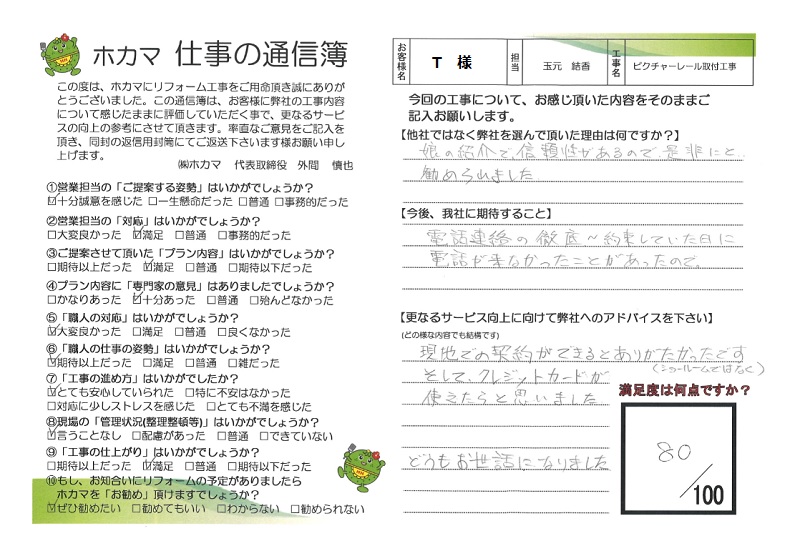 ホカマ 仕事の通信簿
この度は、ホカマにリフォーム工事をご用命頂き誠にありが
とうございました。この通信簿は、お客様に弊社の工事内容
について感じたままに評価していただく事で、更なるサービ
スの向上の参考にさせて頂きます。率直なご意見をご記入を
頂き、同封の返信用封筒にてご返送下さいます様お願い申し
上げます。
㈱ホカマ 代表取締役 外間 慎也
①営業担当の「ご提案する姿勢」はいかがでしょうか?
☑十分誠意を感じた □一生懸命だった □普通 □事務的だった
②営業担当の「対応」はいかがでしょうか?
□大変良かった ☑満足 □普通 □事務的だった
③ご提案させて頂いた「プラン内容」はいかがでしょうか?
□期待以上だった ☑満足 □普通 □期待以下だった
④プラン内容に「専門家の意見」はありましたでしょうか?
□かなりあった ☑十分あった □普通 □殆んどなかった
⑤「職人の対応」はいかがでしょうか?
☑大変良かった □満足 □普通 □良くなかった
⑥「職人の仕事の姿勢」はいかがでしょうか?
☑期待以上だった □満足 □普通 □雑だった
⑦「工事の進め方」はいかがでしたか?
☑とても安心していられた □特に不安はなかった
□対応に少しストレスを感じた □とても不満を感じた
⑧現場の「管理状況(整理整頓等)」はいかがでしょうか?
☑言うことなし □配慮があった □普通 □できていない
⑨「工事の仕上がり」はいかがでしょうか?
□期待以上だった ☑満足 □普通 □期待以下だった
⑩もし、お知合いにリフォームの予定がありましたら
ホカマを「お勧め」頂けますでしょうか?
☑ぜひ勧めたい □勧めてもいい □わからない □勧められない
お客様名 T 様 担当 玉元 結香 工事名 ピクチャーレール取付工事
今回の工事について、お感じ頂いた内容をそのままご
記入お願いします。
【他社ではなく弊社を選んで頂いた理由は何ですか?】
娘の紹介で、信頼性があるので、是非にと
勧められました
【今後、我社に期待すること】
電話連絡の徹底~約束していた日に
電話が来なかったことがあったので。
【更なるサービス向上に向けて弊社へのアドバイスを下さい】
(どの様な内容でも結構です)
現地での契約ができるとありがたかったです
(ショールームではなく)
そして、クレジットカードが
使えたらと思いました
どうもお世話になりました
満足度は何点ですか?
80/100